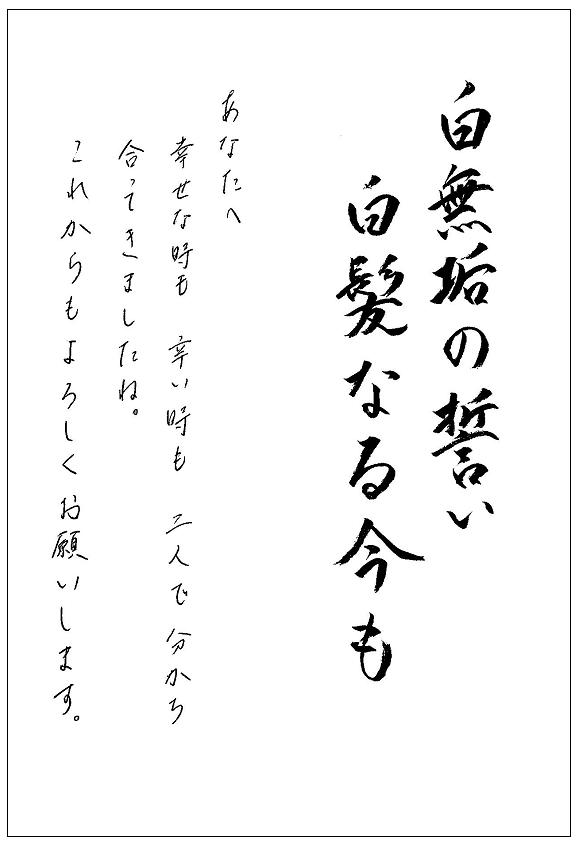 白無垢の誓い
白髪なる今も
あなたへ
幸せな時も 辛い時も 二人で分かち
合ってきましたね。
これからもよろしくお願いします。